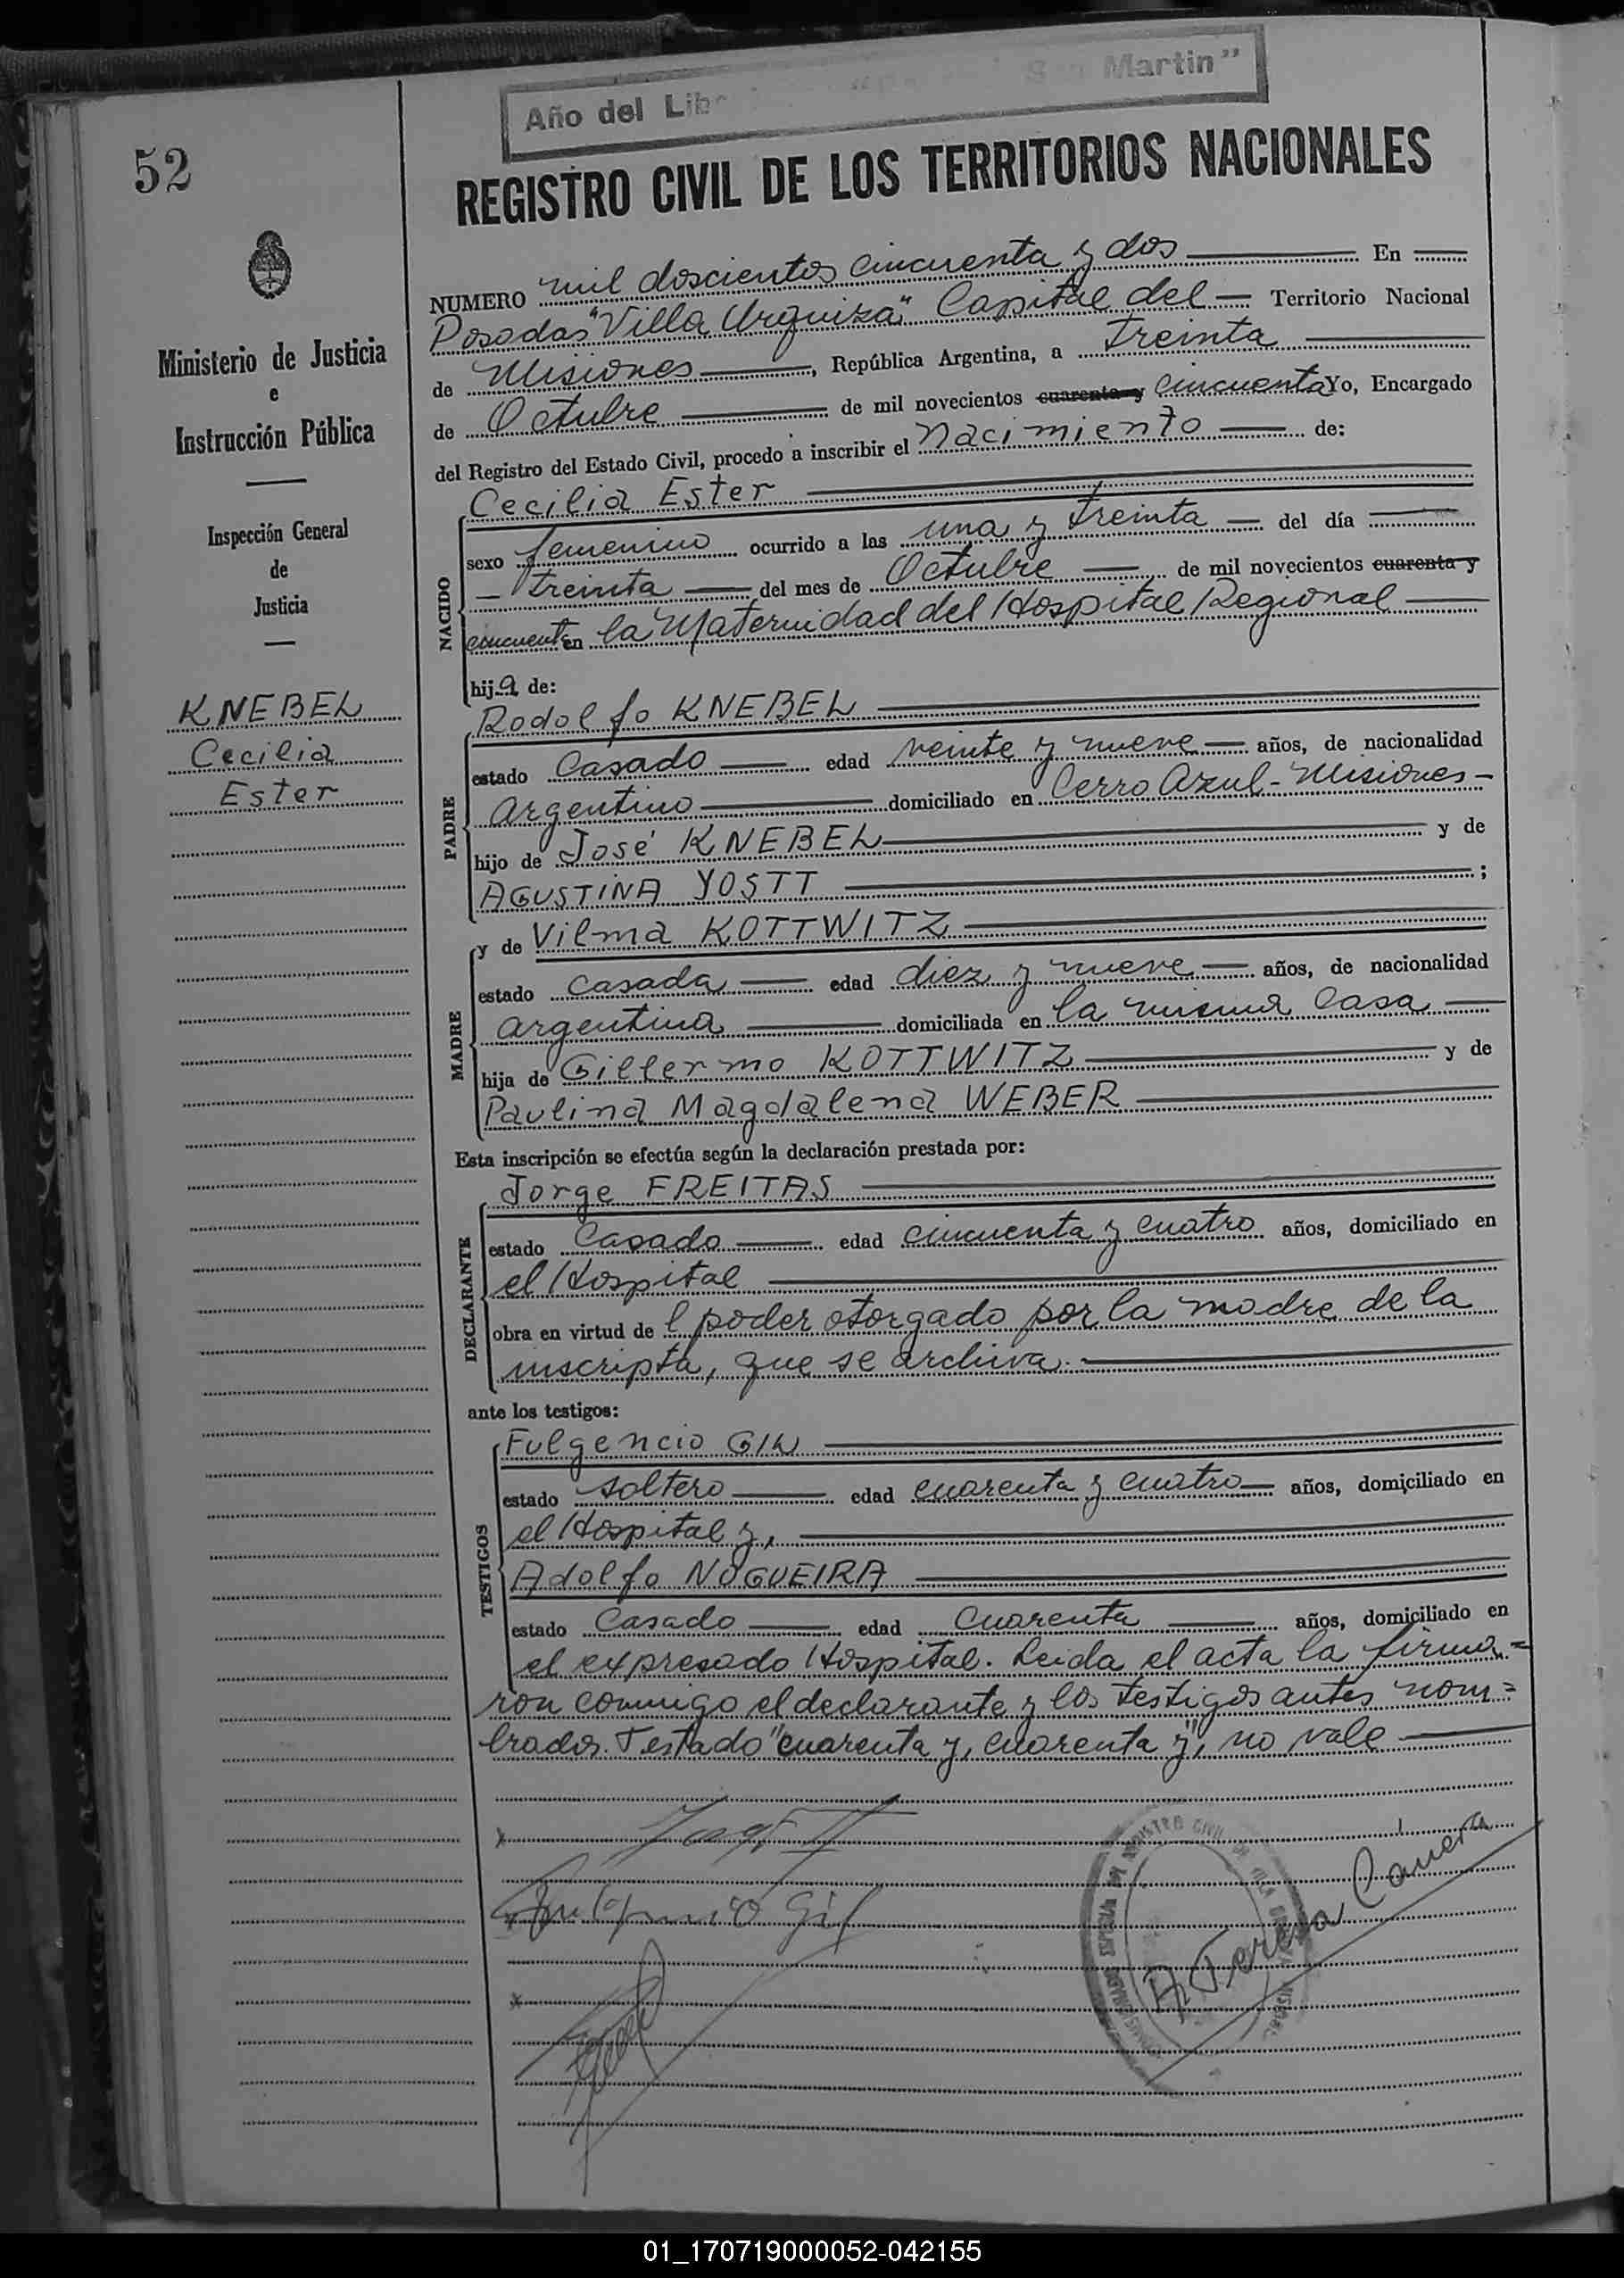 Año del Lib San Martin"
52
REGISTRO CIVIL DE LOS TERRITORIOS NACIONALES
Ministerio de Justicia
e
Instrucción Pública
Inspección General
de
Justicia
KNEBEL
Cecilia
Ester
NUMERO mil doscientos cincuenta y dos En
Posadas "Villa Urquiza" Capital del Territorio Nacional
de Misiones, República Argentina, a treinta
de Octubre de mil novecientos cuarenta y cincuenta Yo, Encargado
del Registro del Estado Civil, procedo a inscribir el nacimiento de:
NACIDO
Cecilia Ester
sexo femenino ocurrido a las una y treinta del día
treinta del mes de Octubre de mil novecientos cuarenta y
cincuenta en la Maternidad del Hospital Regional
hija de:
PADRE
Rodolfo KNEBEL
estado Casado edad veinte y nueve años, de nacionalidad
argentino domiciliado en Cerro Azul - Misiones -
hijo de José KNEBEL y de
AGUSTINA YOSTT ;
MADRE
y de Vilma KOTTWITZ
estado casada edad diez y nueve años, de nacionalidad
argentina domiciliada en la misma casa
hija de Gillermo KOTTWITZ y de
Paulina Magdalena WEBER
Esta inscripción se efectúa según la declaración prestada por:
DECLARANTE
Jorge FREITAS
estado Casado edad cincuenta y cuatro años, domiciliado en
el Hospital
obra en virtud de l poder otorgado por la madre de la
inscripta, que se archiva.
ante los testigos:
TESTIGOS
Fulgencio GIL
estado soltero edad cuarenta y cuatro años, domiciliado en
el Hospital y,
Adolfo NOGUEIRA
estado Casado edad cuarenta años, domiciliado en
el expresado Hospital. Leida el acta la firma=
ron conmigo el declarante y los testigos antes nom=
brados. Testado "cuarenta y, cuarenta y", no vale
Fulgencio Gil
Teresa
01_170719000052-042155